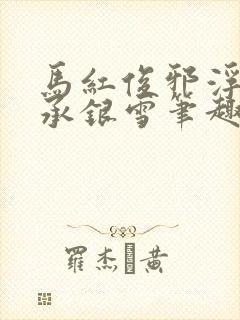 馬紅俊邪浮
承銀雪筆趣
羅杰 黃